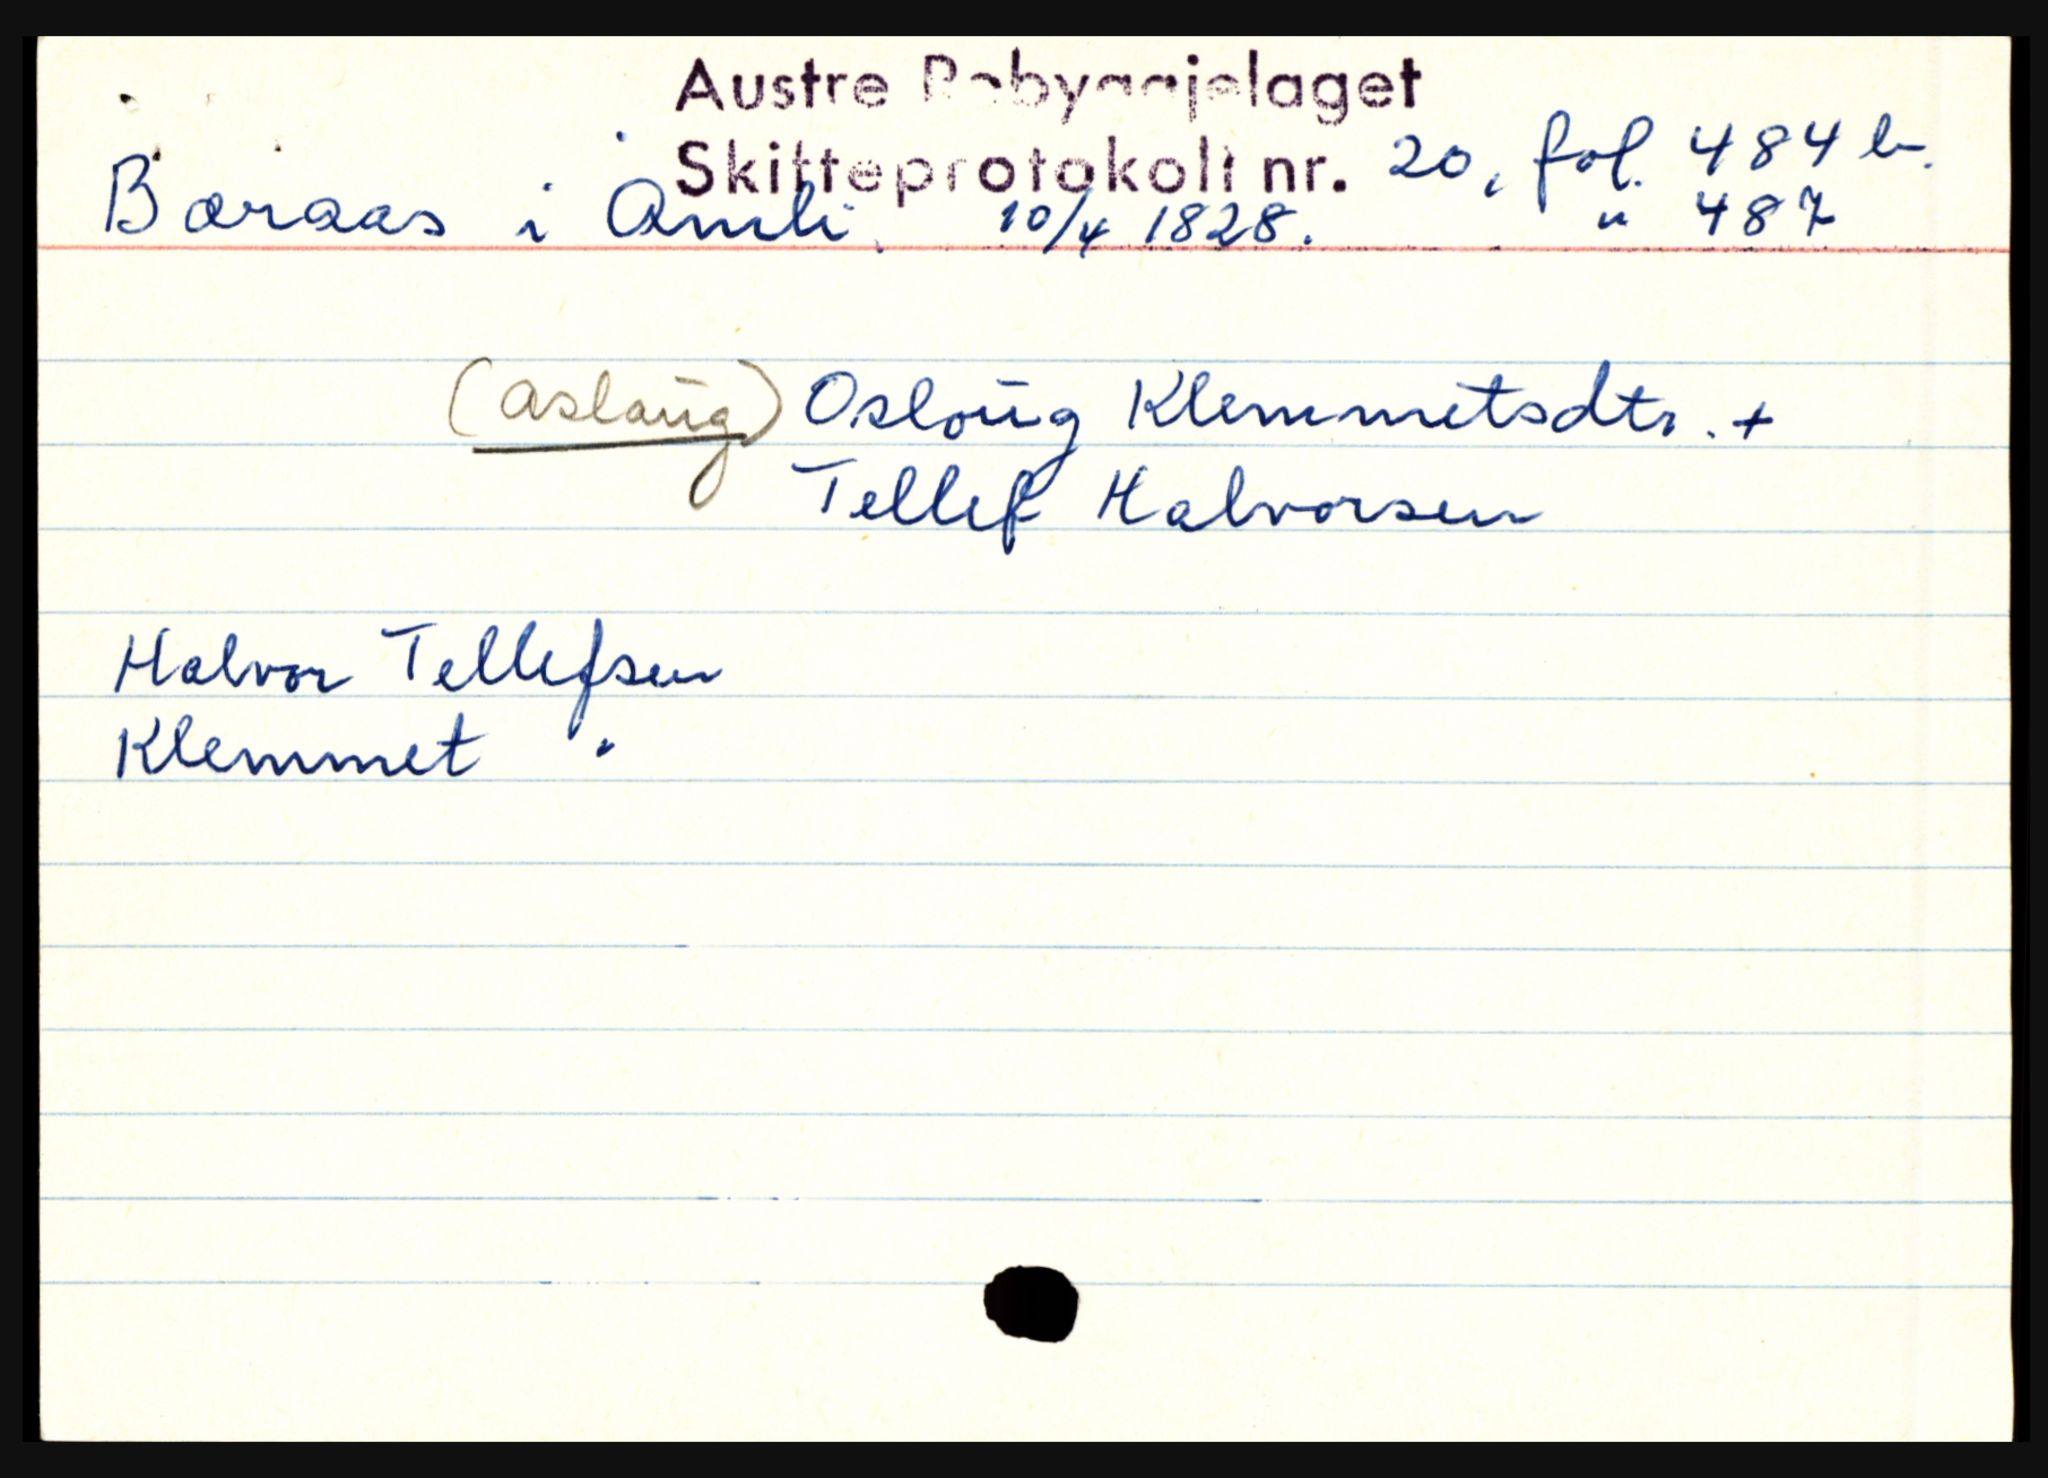 Austre Robyggjelaget
Skifteprotokoll nr. 20, fol. 484 b.
Boraas i Omli. 10/4 1828. " 487
(Aslaŭg) Osloŭg Klemmetsdtr. +
Tellef Halvorsen
Halvor Tellefsen
Klemmet "